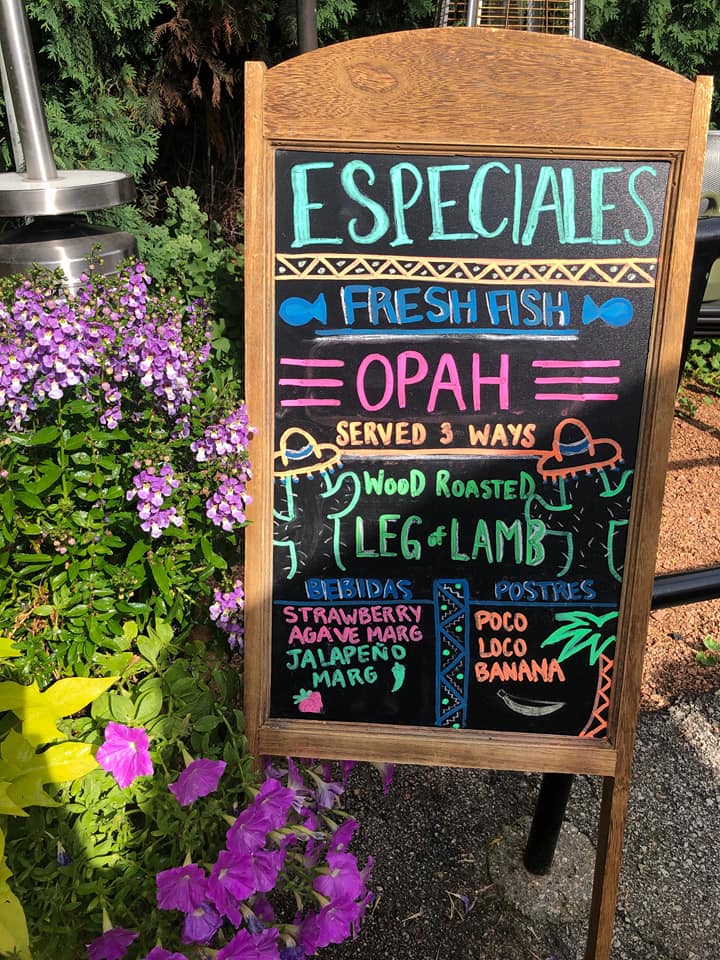 ESPECIALES
FRESH FISH
OPAH
SERVED 3 WAYS
WOOD ROASTED
LEG of LAMB
BEBIDAS
STRAWBERRY
AGAVE MARG
JALAPEÑO
MARG
POSTRES
POCO
LOCO
BANANA